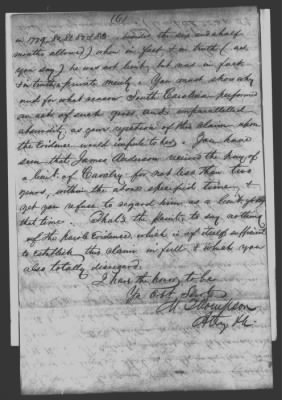 (6)
in 1779, 80, 81, 82 & 83 - besides the six and half
months allowed) when in fact & in truth (as
you say) he was not Lieut. but was in fact
& in truth a private merely. You must show why
and for what reason South Carolina performed
an act of such gross and unparalleled
absurdity as your rejection of this claim upon
the Evidence would impute to her. You have
seen that James Anderson received the pay of
a Lieut of Cavalry for not less than two
years, within the above specified time, &
yet you refuse to regard him as a Lieut for
that time. That's the point, to say nothing
of the parole Evidence which is of itself sufficient
to establish this claim in full & which you
also totally disregard.
I have the honor to be
Yr Obt Servt
Thompson
Atty &c.